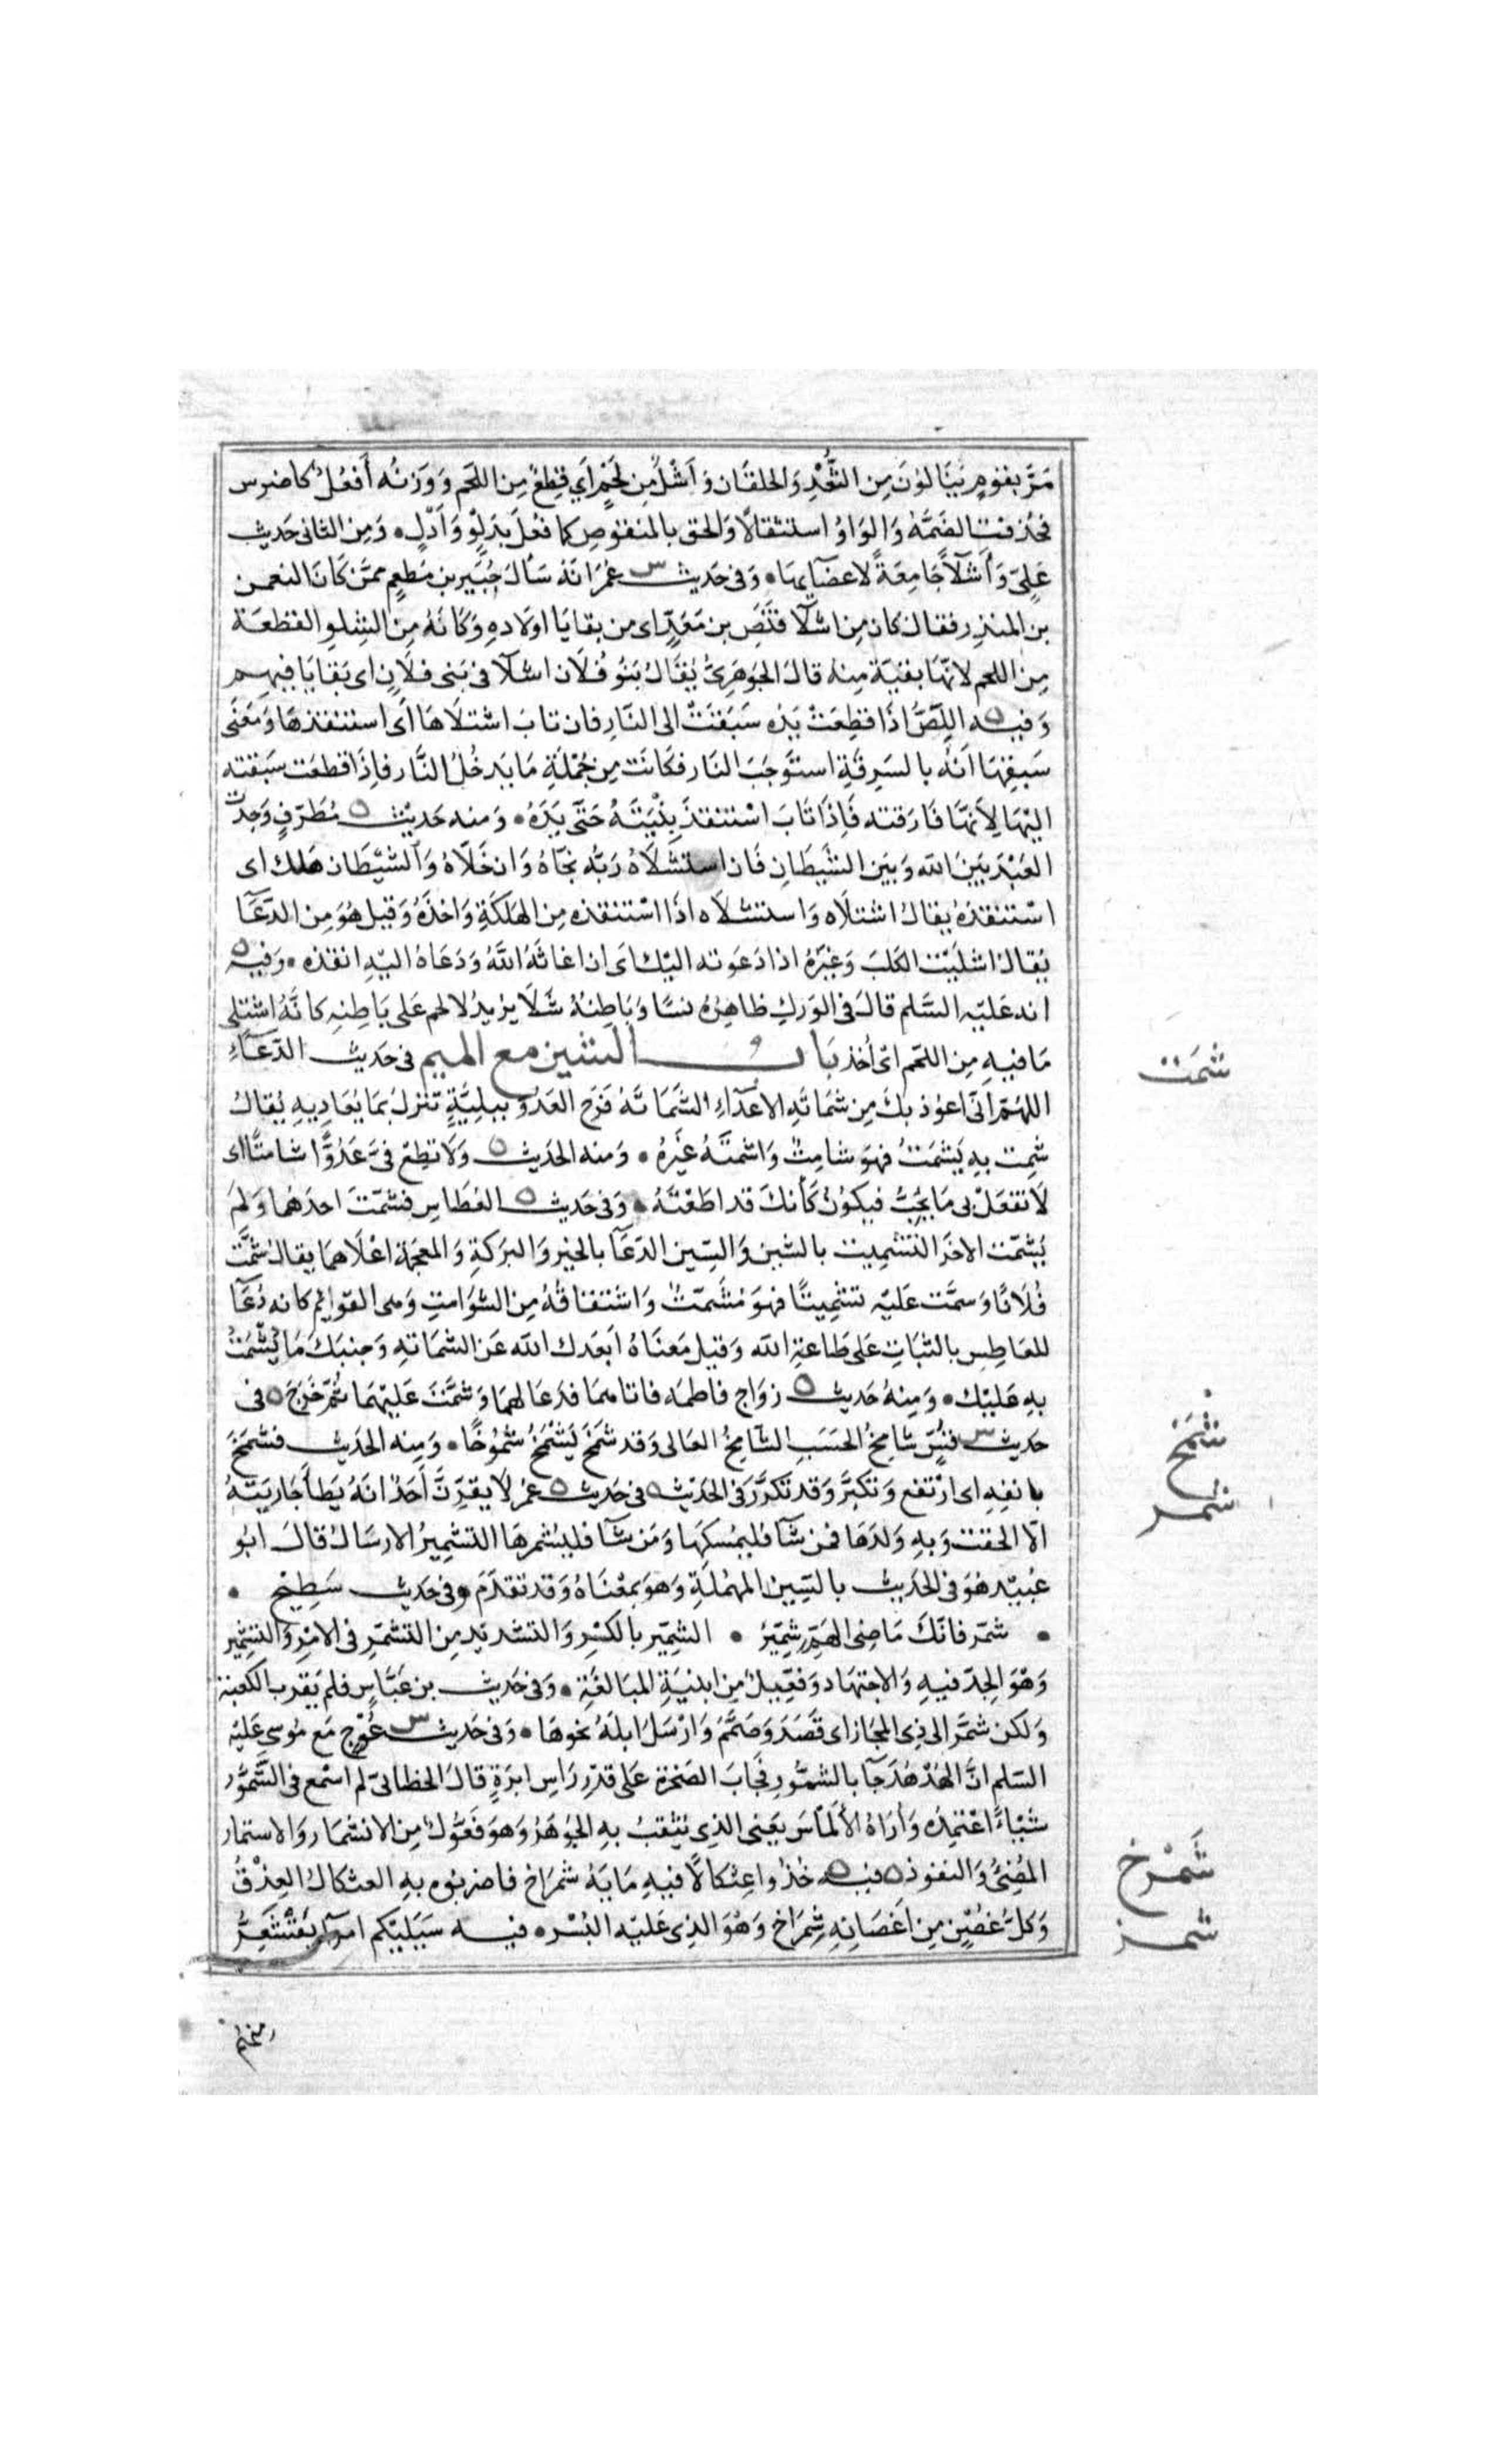 مَرَّ بقومٍ يَنَالوُنَ مِن الثَّعْدِ وَالحلقَان وَاَشْلٍ مِّن لَحْمٍ اَي قِطَعٍ مِنَ اللحَم وَوَزنُه أَفعُلْ كاضرس
فحُذِفتِ الضَمَّةُ وَالوَاوُ استثقالًا وَالحق بالمنقوصِ كما فُعلَ بدَلِوٍْ وَاَدْلٍ ٥ وَمِن الثانى حَديث
عَلىٍّ وَأَشلآءً جَامِعَةً لاعضآئِها ٥ وَفى حَديث س عُمرَ انهُ سَألَ جُبَيرَ بن مُطعِمٍ ممَّن كَانَ النعمن
بن المنذر فقال كان مِن اشلآ قنَصِ بن مَعَدٍّ اى من بقايَا اولَادِهِ وَكانهُ مِنَ الشِلوِ القطعَة
مِنَ اللحم لانهَا بقيَّة مِنهُ قالَ الجَوهَرىُّ يُقالُ بَنوُ فُلَان اشلآ فى بَنى فلَانٍ اى بَقايَا فيهِم
وَفيه ٥ اللِّصُّ اذَا قطِعَتْ يَدُه سَبَقتْ الى النَّارِ فان تابَ اشتلَاهَا اَى استنقذهَا وَمَعنَى
سَبقِهَا اَنهُ بالسَرِقَةِ استَوجَبَ النَار فكَانَت مِن جُملَةِ مَا يَدخُلُ النَّار فاِذَا قطعَت سَبَقته
اليْهَا لِاَنهَا فَارَقته فَاِذَا تَابَ اسْتنقذَ بِنْيَتَهُ حَتّى يَدَهُ ٥ وَمنه حَديث ٥ مُطَرِّفٍ وَجَدتُ
العَبْدَ بَينَ الله وَبَين الشَّيطَانِ فَان استشلَاهُ رَبُّه نَجّاهُ وَان خَلّاهُ وَالشّيطَان هَلَك اى
اسْتنقذهُ يقالُ اشتلَاه وَاستشلَاه اذَا اسْتنقذه مِن الهَلكَةِ وَاخذَهُ وَقيل هُوَ مِن الدّعَآ
يُقال اشليْت الكلبَ وَغيرَهُ اذا دَعَوته اليْك اى ان اغاثهُ اللهُ وَدَعَاهُ اليْهِ انقذه ٥ وَفيه ٥
انه عَليْه السَّلم قالَ فى الوَركِ ظاهِرُهُ نسًا وَبَاطِنُهُ شَلَا يرُيدُ لا لحم عَلى بَاطِنِهِ كانَّهُ اشتلى
مَا فيهِ مِن اللحَم اىْ أُخذ بَاب الشين مع الميم فى حَديث الدّعَآءِ
اللهُمّ اِنّى اعوُذ بكَ مِن شمَاتَةِ الاعدَآءِ الشَّمَاتَهُ فَرَح العَدُوِّ ببليَّةٍ تنزلُ بمَن يُعَادِيهِ يُقالُ
شمِت بهِ يَشمَتُ فهوَ شامِتٌ وَاشمتَهُ غيرُهُ ٥ وَمنه الحَديث ٥ وَلَا تُطِعْ فىَّ عَدُوًّا شامتًا اى
لَا تَفعَلْ بى مَا يُحِبُّ فيكوُنُ كَأنكَ قد اطَعْتَهُ ٥ وَفى حَديث ٥ العُطَاسِ فشمّتَ احدَهُما وَلم
يُشمّت الاخرَ التشميت بالشين وَالسِين الدّعَآ بالخير وَالبرَكةِ وَالمعجمَة اعْلَاهمَا يقالُ شمَّتَ
فُلَانًا وَسمَّت عَليْه تشمِيتًا فهوَ مُشَمّتٌ وَاشتقَاقُهُ مِن الشوَامتِ وَهى القوَائم كانه دُعَآ
للعَاطِس بالثبَاتِ عَلى طَاعةِ الله وَقيل مَعنَاهُ ابعَدك الله عَن الشمَاتهِ وَجنبَكَ مَا يُشْمَتُ
بهِ عَليْكَ ٥ وَمِنهُ حَديث ٥ زوَاج فاطمَه فاتاهُما فدَعَا لهمَا وَشمَّتَ عَليْهمَا ثُمّ خرَجَ ٥ فى
حَديث س قُسٍّ شامِخُ الحَسَبِ الشآمِخُ العَالى وَقد شمَخَ يَشمَخُ شمُوخًا ٥ وَمِنه الحَديث فشمَخَ
بانفِهِ اى ارْتفع وَتكبَّر وَقد تكرَّرَ فى الحَديث ٥ فى حَديث ٥ عُمرَ لَا يقِرّنَّ أَحَدٌ انَهُ يَطَأُ جَاريَتهُ
الّا الحقت بهِ وَلَدَهَا فمَن شآ فليُمسكهَا وَمَن شآ فليُشمرهَا التشمِيرُ الارسَالُ قالَ ابُو
عُبَيْد هوَ فى الحَديث بالسِين المهمَلَةِ وَهوَ بمعْنَاهُ وَقد تقدّمَ وفى حَديث سَطِيْح ٥
٥ شمّر فانّكَ مَاضى الهَمِّ شِمِّيرُ ٥ الشمّير بالكسْرِ وَالتشديدِ مِن التشمّرِ فى الامْرِ وَالتشْمِير
وَهْوَ الجِدّ فيهِ وَالاجتهَاد وَفعِّيلٌ مِن ابنيَةِ المبَالغةِ ٥ وَفى حَديث بن عَبَّاسٍ فلم يَقرب الكعبَة
وَلكن شمَّرَ الى ذِى المجَاز اى قصَدَ وَصَمَّمَ وَارْسَلَ ابلَهُ نحوهَا ٥ وَفى حَديث س عُوْجٍ مَع مُوسى عَليْه
السّلم انَّ الهُدْهُدَ جآ بالشمُّورِ فجَابَ الصَخرَة عَلى قدْرِ رَاسِ ابرَةٍ قالَ الخطابىّ لم اسْمع فى الشَّمُّور
شيئًا اعْتمِدُه وَأُرَاهُ الْأَلمَاسَ يَعنى الذى يُثقبُ بهِ الجَوْهَرُ وَهوَ فَعُّولٌ مِن الانشمَار وَالاستمار
المُضِىُّ وَالنفوذ ٥ فيه ٥ خُذُوا عِثكالًا فيهِ مَايَهُ شمْرَاخٍ فاضربُوه بهِ العثكالُ العِذْقُ
وَكلُّ غُصْنٍ مِن اَغصَانِهِ شِمرَاخٌ وَهْوَ الذى عَليْه البُسْر ٥ فيه سَيَليْكم امَرَآء تقْشَعِرُّ
شمَتَ
شمَخ
شمر
شَمْرَخ
شمز
منهم